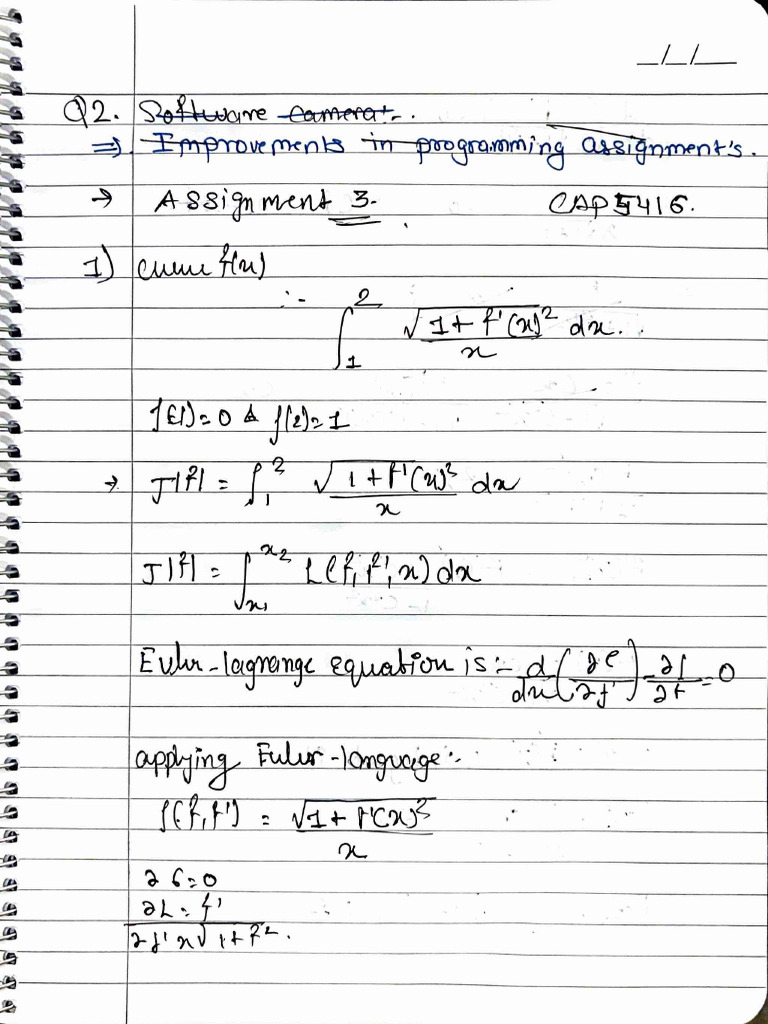 _/_/__
Q2. Software camera:-
⇒ Improvements in programming assignment's.
→ Assignment 3. CAP5416.
1) curve f(x)
:- ∫₁² √(1 + f'(x)²) / x dx.
f(1)=0 & f(2)=1
→ J|f| = ∫₁² √(1 + f'(x)²) / x dx
J|f| = ∫ₓ₁ˣ² L(f, f', x) dx
Euler-lagrange equation is:- d/dx (∂l/∂f') - ∂f/∂f = 0
applying Euler-language:-
f(f, f') = √(1 + f'(x)²) / x
∂6=0
∂L = f'
∂f' x√1+f².